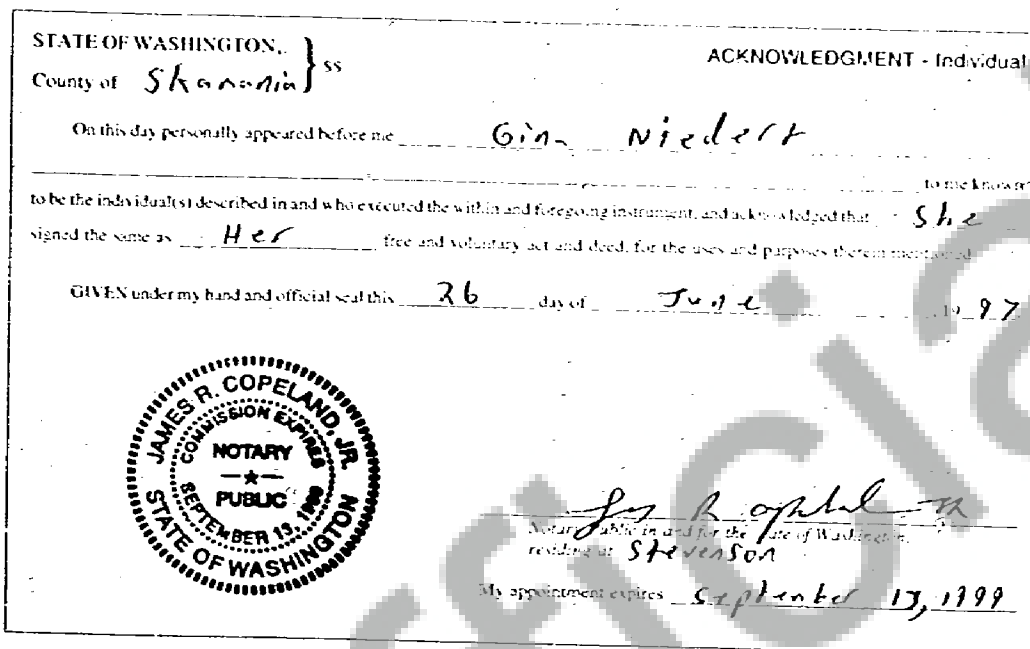 STATE OF WASHINGTON, } ss
ACKNOWLEDGMENT - Individual
County of Skamania
On this day personally appeared before me Gina Niedert
to me known
to be the individual(s) described in and who executed the within and foregoing instrument, and acknowledged that She
signed the same as Her free and voluntary act and deed, for the uses and purposes therein mentioned
GIVEN under my hand and official seal this 26 day of June 19 97
JAMES R. COPELAND, JR.
COMMISSION EXPIRES
NOTARY
PUBLIC
SEPTEMBER 13, 1999
STATE OF WASHINGTON
Notary Public in and for the State of Washington,
residing at Stevenson
My appointment expires September 13, 1999